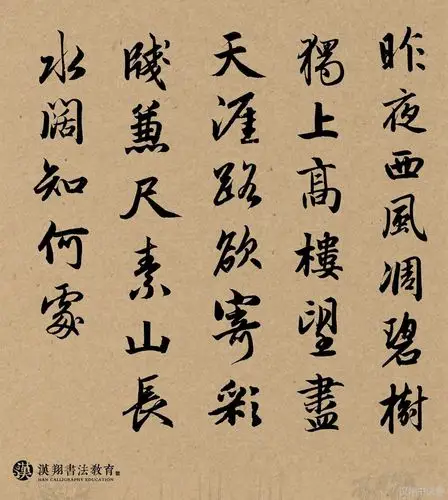 昨夜西風凋碧樹
獨上高樓望盡
天涯路欲寄彩
牋兼尺素山長
水闊知何處
漢翔書法教育
HAN CALLIGRAPHY EDUCATION